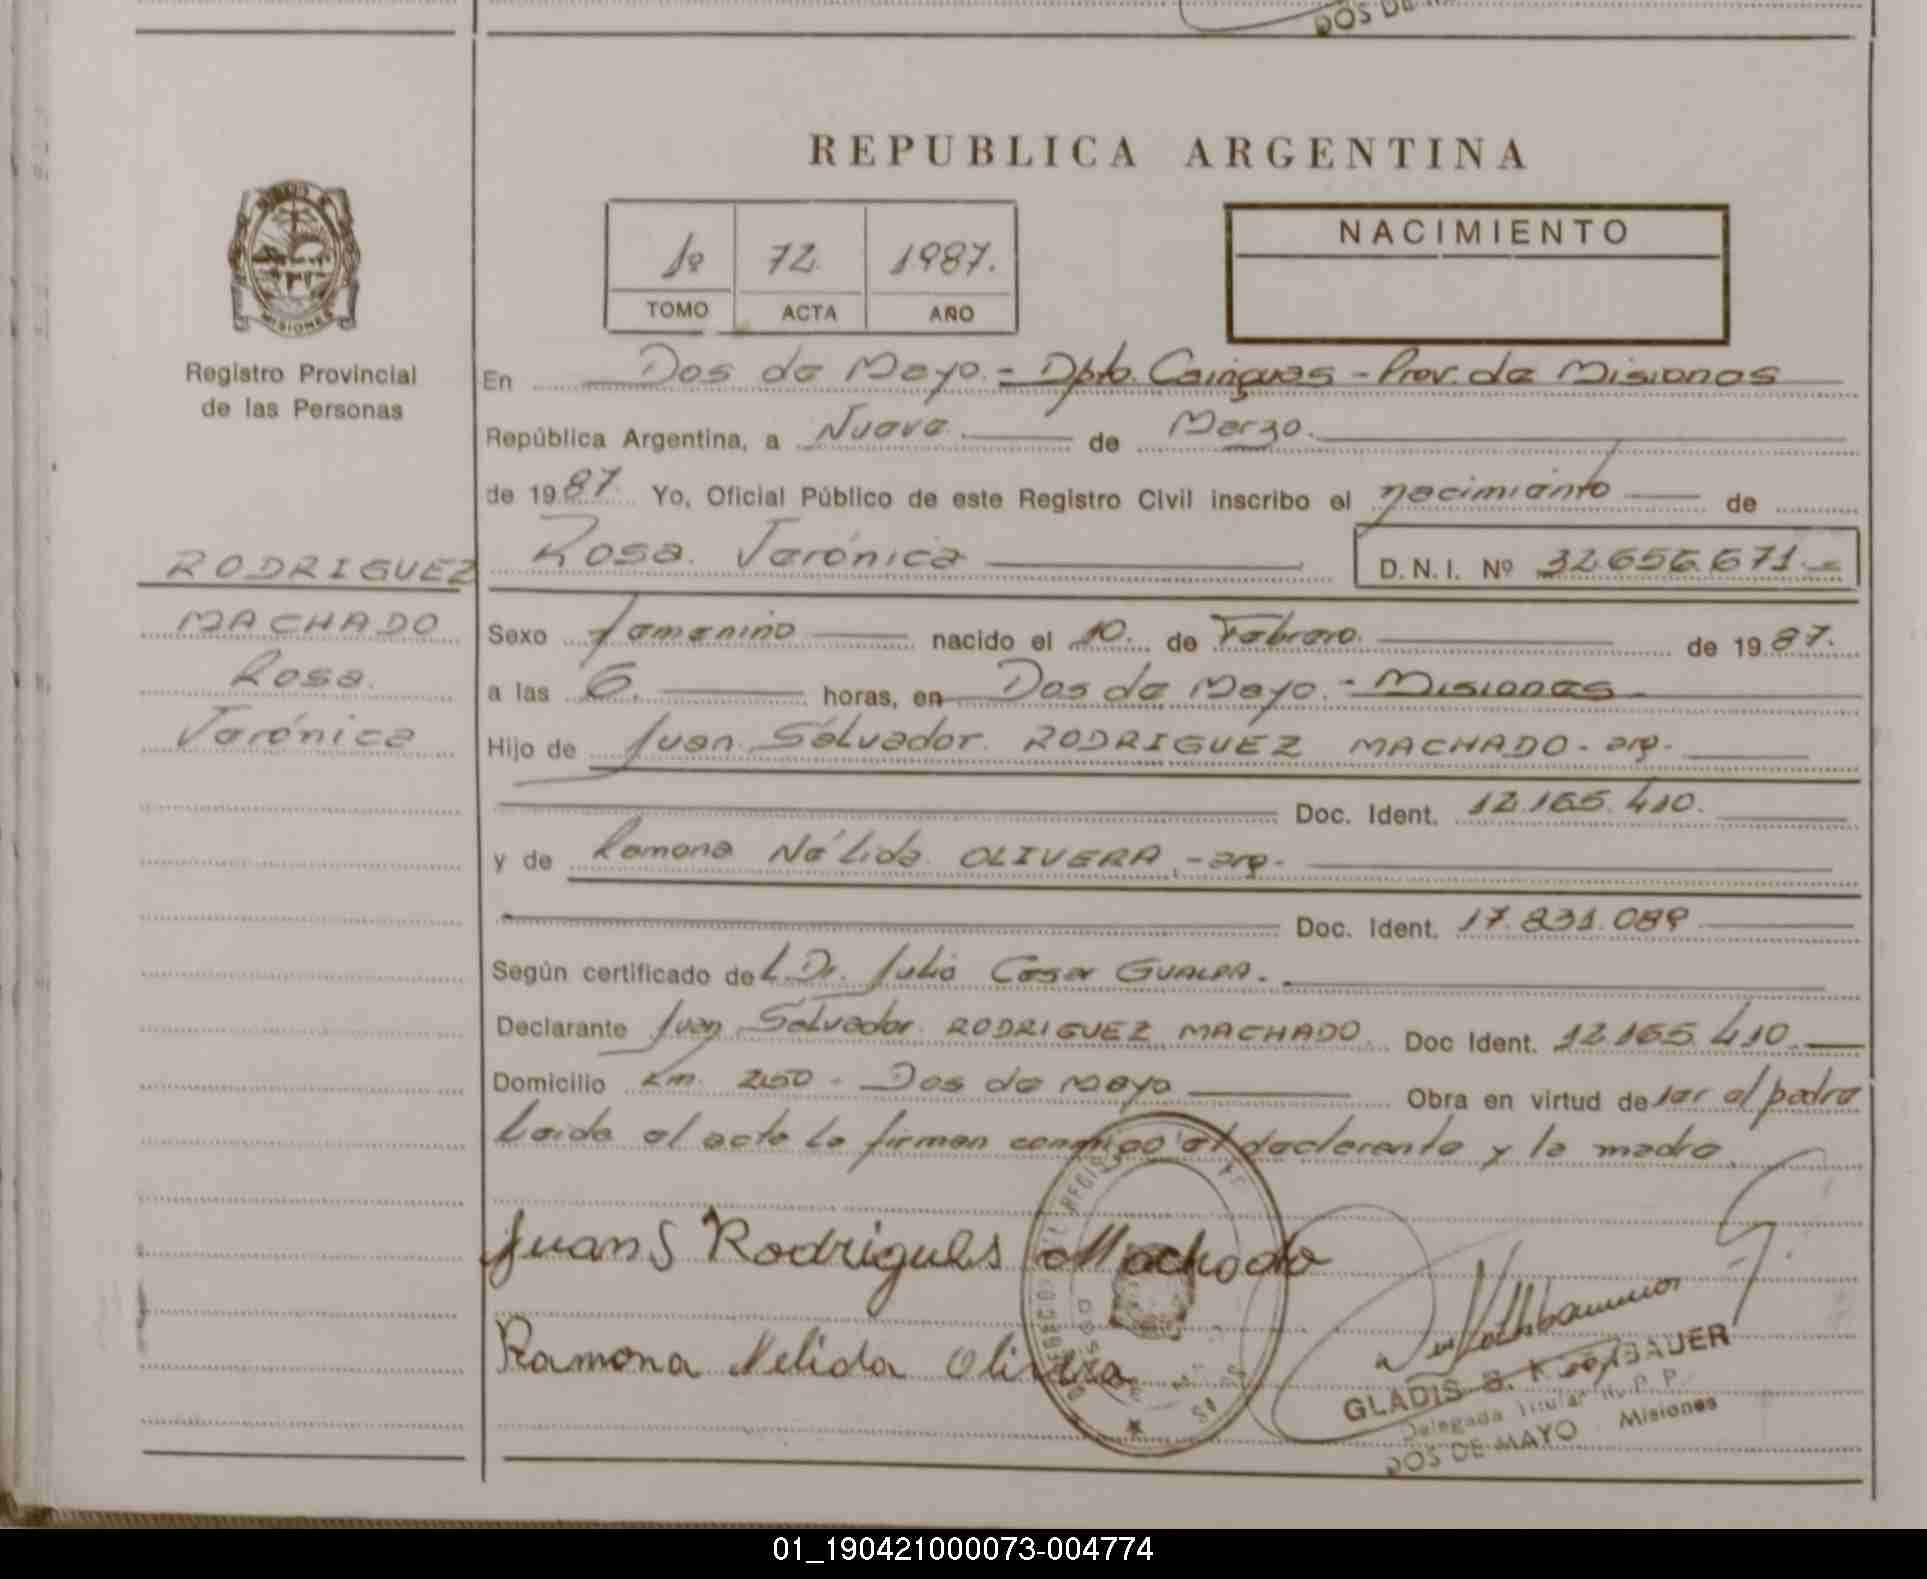 DOS DE
REPUBLICA ARGENTINA
1º 72 1987.
TOMO ACTA AÑO
NACIMIENTO
MISIONES
Registro Provincial
de las Personas
En Dos de Mayo.- Dpto. Cainguas - Prov. de Misiones
República Argentina, a Nueve de Marzo.
de 1987. Yo, Oficial Público de este Registro Civil inscribo el nacimiento de
Rosa Verónica D.N.I. Nº 32.656.671.-
RODRIGUEZ
MACHADO
Rosa
Verónica
Sexo femenino nacido el 10. de Febrero. de 1987.
a las 6. horas, en Dos de Mayo.- Misiones
Hijo de Juan Salvador RODRIGUEZ MACHADO - arg.
Doc. Ident. 12.165.410.
y de Ramona Nélida OLIVERA.-arg-
Doc. Ident. 17.831.089
Según certificado de L Dr. Julio Cesar GUALPA.
Declarante Juan Salvador RODRIGUEZ MACHADO Doc Ident. 12.165.410.
Domicilio Km. 250 - Dos de Mayo Obra en virtud de ser el padre
Leida el acta la firman conmigo el declarante y la madre
Juan S Rodrigues Machado
Ramona Nelida Olivera
GLADIS B.
Delegada Titular R. P. P.
DOS DE MAYO Misiones
01_190421000073-004774